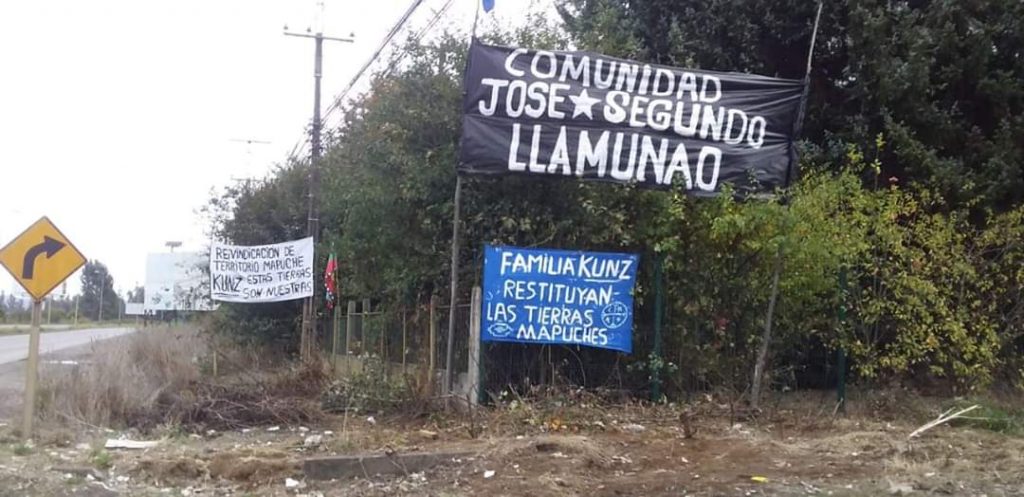 COMUNIDAD
JOSE★SEGUNDO
LLAMUNAO
REIVINDICACION DE
TERRITORIO MAPUCHE
KUNZ ESTAS TIERRAS
SON NUESTRAS
FAMILIA KUNZ
RESTITUYAN
LAS TIERRAS
MAPUCHES